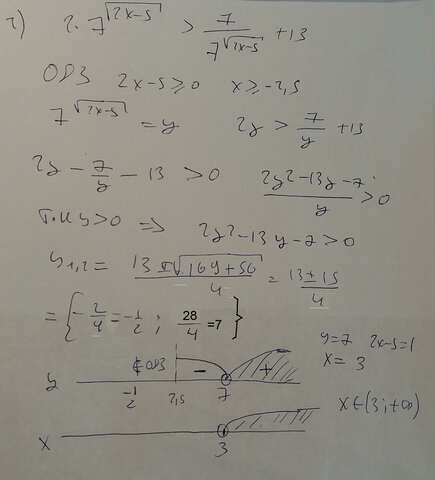 2) 2·7^√(2x-5) > 7/7^√(2x-5) +13
ОДЗ 2x-5≥0 x≥-2,5
7^√(2x-5) = y 2y > 7/y +13
2y - 7/y - 13 > 0 (2y²-13y-7)/y > 0
т.к y>0 ⇒ 2y²-13y-7>0
y1,2 = (13±√(169+56))/4 = (13±15)/4
= {-2/4=-1/2 ; 28/4=7}
y=7 2x-5=1
x=3
∉ОДЗ - +
y -1/2 2,5 7
x∈(3;+∞)
x 3